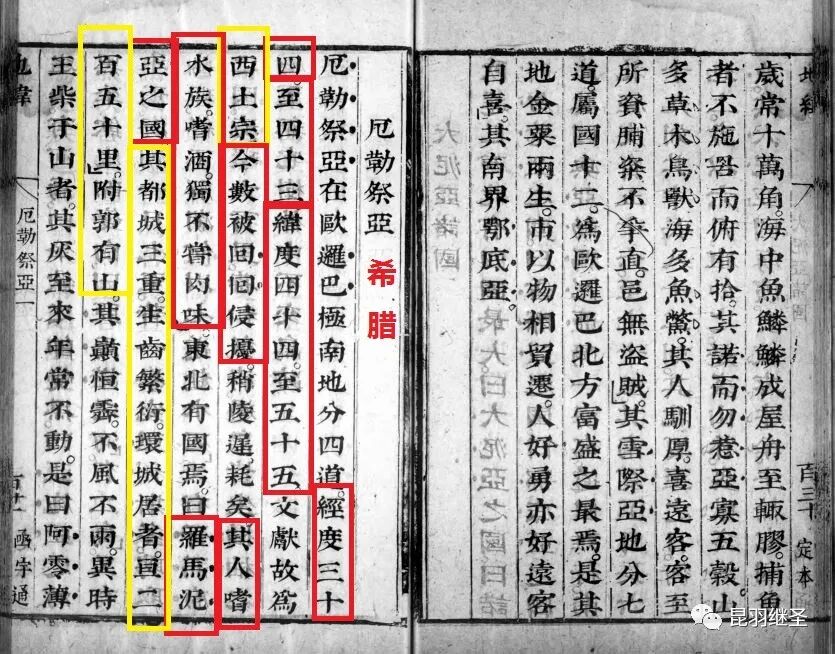 地緯
百三十 定本
歲常十萬角。海中魚鱗鱗成屋。舟至輙膠。捕魚
者不施罟而俯有拾。其諾而勿惹。亞寡五穀。山
多草木鳥獸。海多魚鱉。其人馴厚。喜遠客。客至
所資脯粢不爭直。邑無盜賊。其雪際亞地分七
道。屬國十二。為歐邏巴北方富盛之最焉。是其
地金粟兩生。市以物相貿遷。人好勇亦好遠客
自喜。其南界鄂底亞。
厄勒祭亞
希腊
厄勒祭亞在歐邏巴極南地分四道。經度三十
四至四十三。緯度四十四至五十五。文獻故為
西土宗。今數被回回侵擾。稍陵遲耗矣。其人嗜
水族。嗜酒。獨不嘗肉味。東北有國焉。曰羅馬泥
亞之國。其都城三重。生齒繁衍。環城居者。亘二
百五十里。附郭有山。其巔恒霽。不風不雨。異時
王柴于山者。其灰至來年常不動。是曰阿零薄
地緯
厄勒祭亞一
函宇通
昆羽继圣